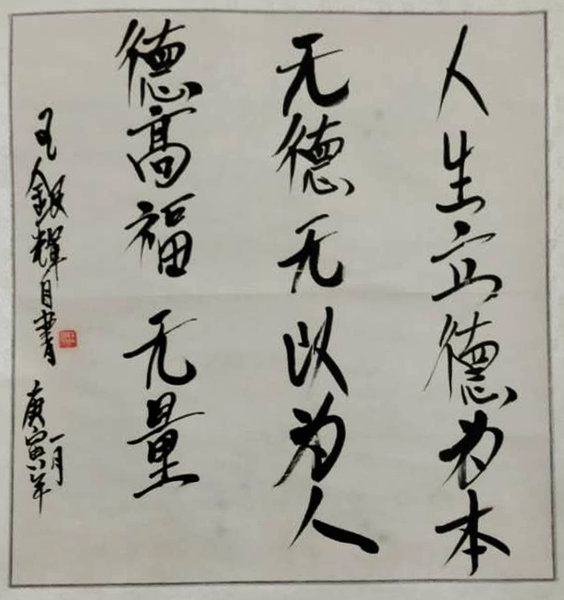 人生德为本
无德无以为人
德高福无量
王銀輝自書
庚寅年
一月